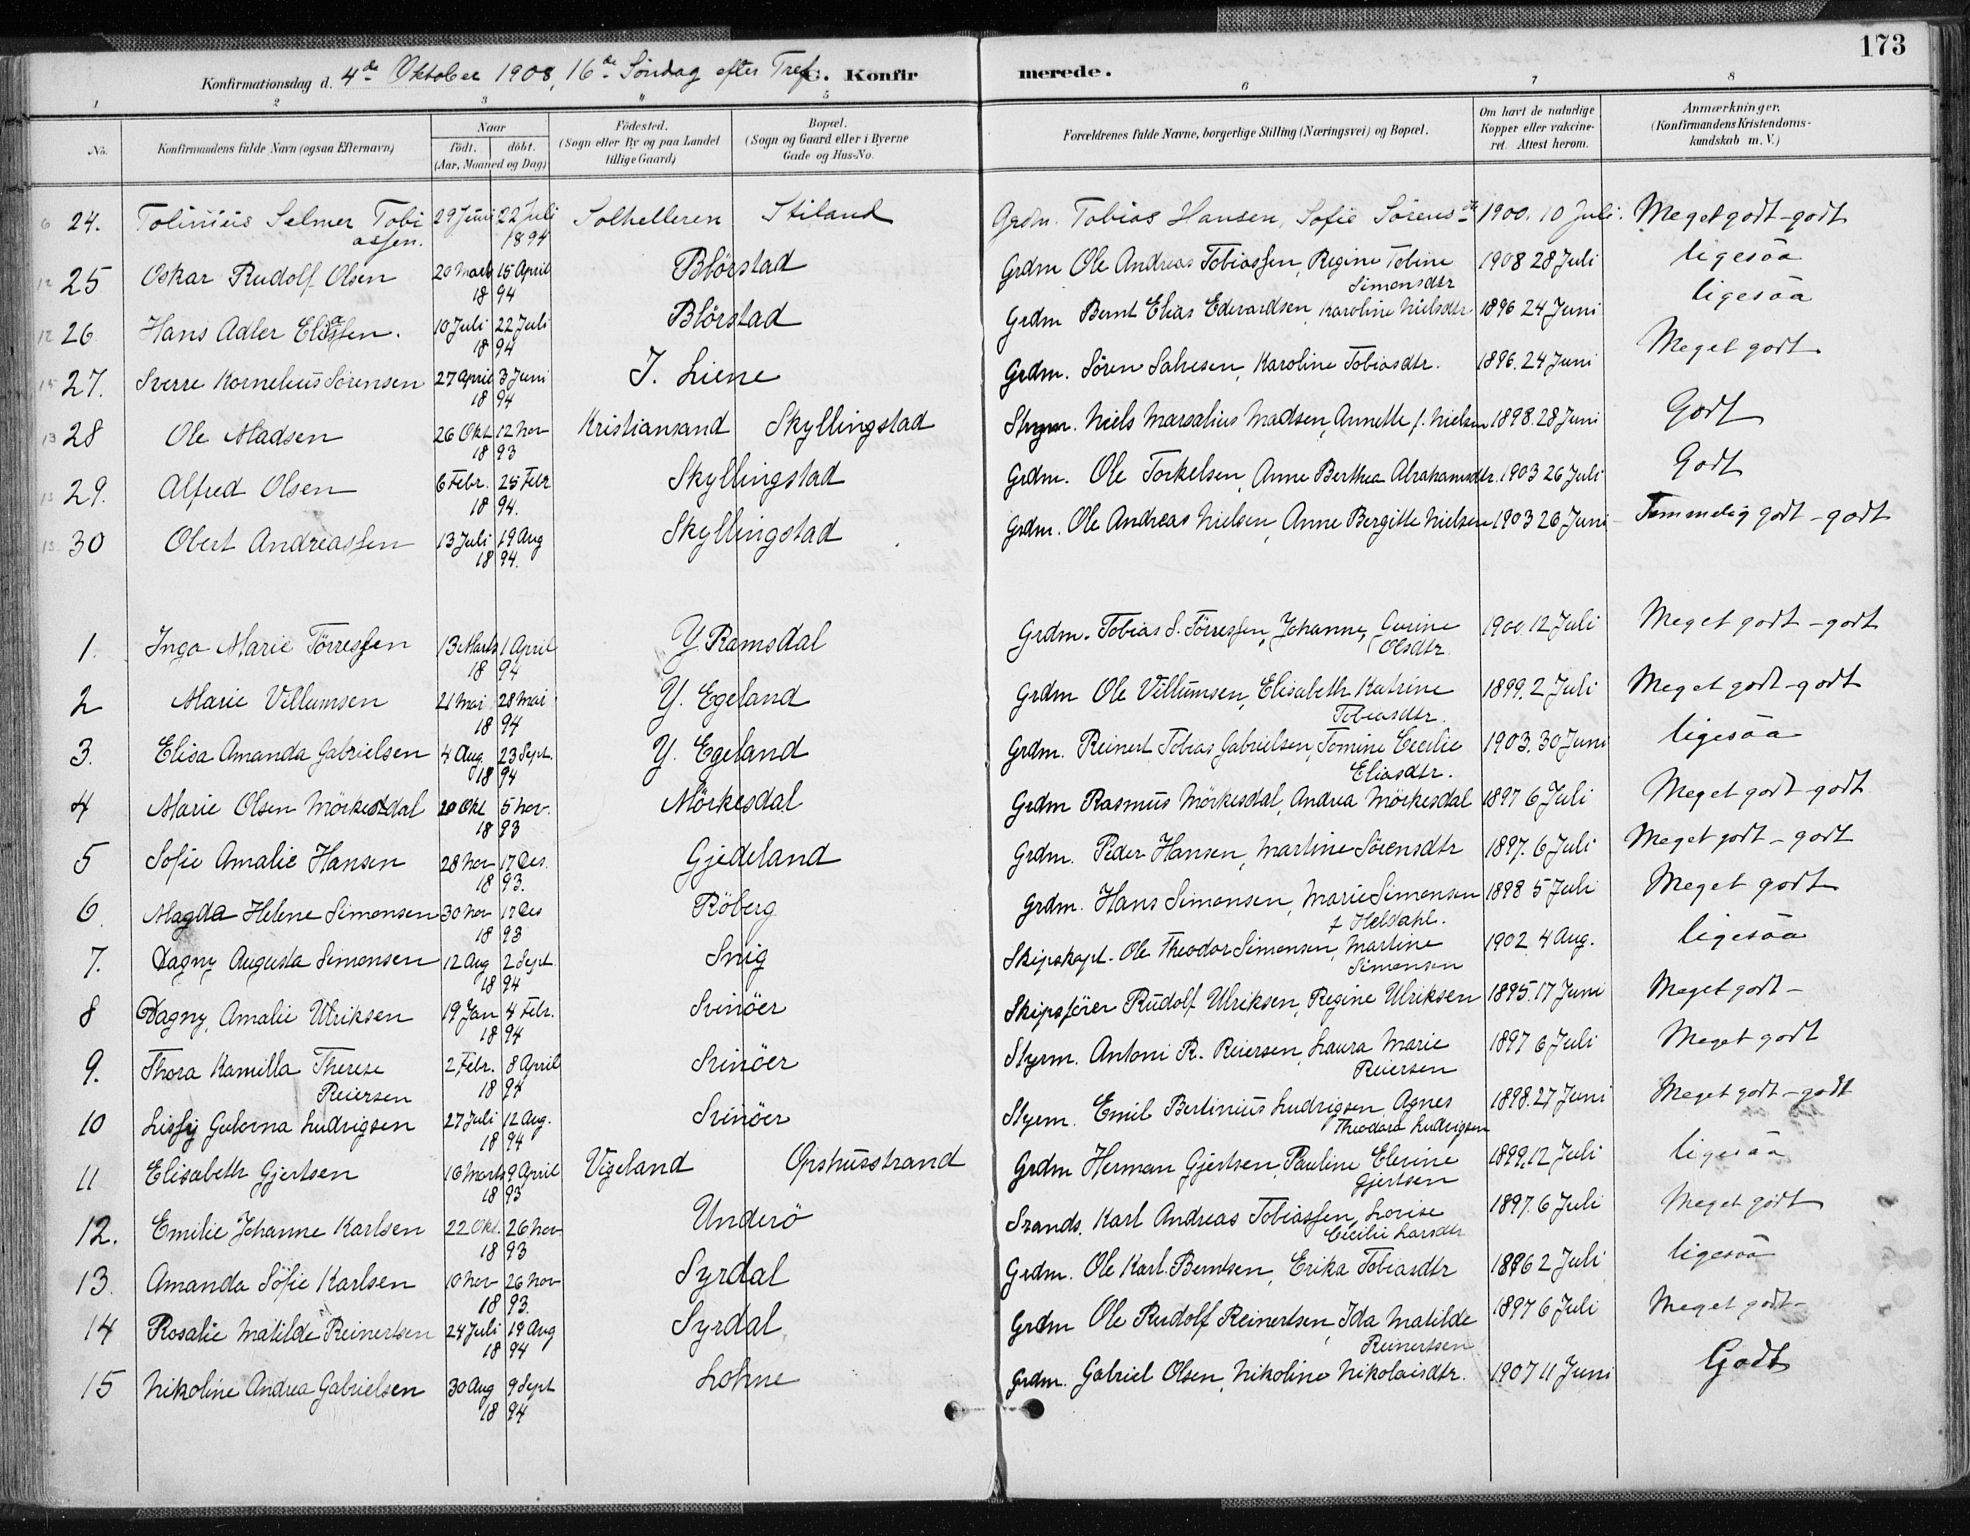 173
Konfirmationsdag d. 4de Oktober 1908, 16de Søndag efter Tref. C. Konfirmerede.
1 2 3 4 5 6 7 8
No. Konfirmandens fulde Navn (ogsaa Efternavn) Naar født. døbt. (Aar, Maaned og Dag) Fødested. (Sogn eller By og paa Landet tillige Gaard) Bopæl. (Sogn og Gaard eller i Byerne Gade og Hus-No. Forældrenes fulde Navne, borgerlige Stilling (Næringsvei) og Bopæl. Om havt de naturlige Kopper eller vakcineret. Attest herom. Anmærkninger. (Konfirmandens Kristendomskundskab m. V.)
6 24. Tolinius Selmer Tobiassen. 29 Juni 22 Juli 1894 Solhelleren Stiland Grdm. Tobias Hansen, Sofie Sørensdtr 1900. 10 Juli. Meget godt-godt
12 25 Oskar Rudolf Olsen 20 Marts 15 April 1894 Blørstad Grdm Ole Andreas Tobiassen, Regine Toline Simonsdtr 1908 28 Juli ligesaa
12 26 Hans Adler Eliassen. 10 Juli 22 Juli 1894 Blørstad Grdm Bernt Elias Edvardsen, Karoline Nielsdtr 1896 24 Juni ligesaa
15 27. Sverre Kornelius Sørensen 27 April 3 Juni 1894 I. Liene Grdm. Søren Salvesen, Karoline Tobiasdtr. 1896. 24 Juni Meget godt
13 28 Ole Madsen 26 Okt 12 Nov 1893 Kristiansand Skyllingstad Styrm. Niels Marsalius Madsen, Annette f. Nielsen 1898. 28 Juni Godt
13 29. Alfred Olsen 6 Febr. 25 Febr 1894. Skyllingstad Grdm. Ole Torkelsen, Anne Berthea Abrahamsdtr. 1903 26 Juli Godt
13 30 Obert Andreassen 13 Juli 19 Aug 1894. Skyllingstad Grdm. Ole Andreas Nielsen, Anne Bergitte Nielsen 1903 26 Juni Temmelig godt-godt
1. Inga Marie Tørressen 13 Marts 1 April 1894 Y Ramsdal Grdm. Tobias S. Tørressen, Johanne, Gurine Olsdtr. 1900. 12 Juli Meget godt-godt
2 Marie Villumsen 21 Mai 28 Mai 1894 Y. Egeland Grdm Ole Villumsen, Elisabeth Katrine Tobiasdtr. 1899. 2 Juli Meget godt-godt
3. Elisa Amanda Gabrielsen 4 Aug. 23 Sept. 1894 Y. Egeland Grdm. Reinert Tobias Gabrielsen, Tomine Cecilie Eliasdtr. 1903. 30 Juni ligesaa
4 Marie Olsen Mörkesdal 20 Okt 5 Nov. 1893 Mörkesdal Grdm Rasmus Mörkesdal, Andrea Mörkesdal 1897 6 Juli Meget godt-godt
5 Sofie Amalie Hansen 28 Nov 17 Des. 1893. Gjedeland Grdm. Peder Hansen, Martine Sörensdtr 1897. 6 Juli Meget godt-godt
6. Magda Helene Simonsen 30 Nov 17 Des 1893 Röberg Grdm. Hans Simonsen, Marie Simonsen f Heldahl. 1898 5 Juli Meget godt
7. Dagny Augusta Simonsen 12 Aug 2 Sept. 1894 Snig Skipskapt. Ole Theodor Simonsen, Martine Simonsen 1902 4 Aug. ligesaa
8 Dagny, Amalie Ulriksen 19 Jan 4 Febr. 1894 Svinöer Skipsförer Rudolf Ulriksen, Regine Ulriksen 1895. 17 Juni Meget godt-
9. Thora Kamilla Therese Reiersen 2 Febr. 8 April 1894 Svinöer Styrm. Antoni R. Reiersen, Laura Marie Reiersen 1897 6 Juli Meget godt
10 Lissy Gulorna Ludvigsen 27 Juli 12 Aug. 1894 Svinöer Styrm. Emil Bertinius Ludvigsen, Agnes Theodora Ludvigsen 1898. 27 Juni Meget godt-godt
11 Elisabeth Gjertsen 16 Marts 9 April 1893 Vigeland Opshusstrand Grdm Herman Gjertsen, Pauline Elevine Gjertsen 1899. 12 Juli ligesaa
12. Emilie Johanne Karlsen 22 Okt. 26 Nov 1893 Underö Srands. Karl Andreas Tobiassen, Lovise Cecilie Larsdtr 1897. 6 Juli Meget godt
13. Amanda Sofie Karlsen 10 Nov 26 Nov 1893. Syrdal Grdm. Ole Karl Berntsen, Erika Tobiasdtr 1896 2 Juli ligesaa
14 Rosalie Matilde Reinertsen 24 Juli 19 Aug 1894 Syrdal Grdm Ole Rudolf Reinertsen, Ida Matilde Reinertsen 1897 6 Juli Meget godt-
15 Nikoline Andrea Gabrielsen 30 Aug 9 Sept 1894 Lohne Grdm. Gabriel Olsen, Nikoline Nikolaisdtr. 1907 11 Juni Godt